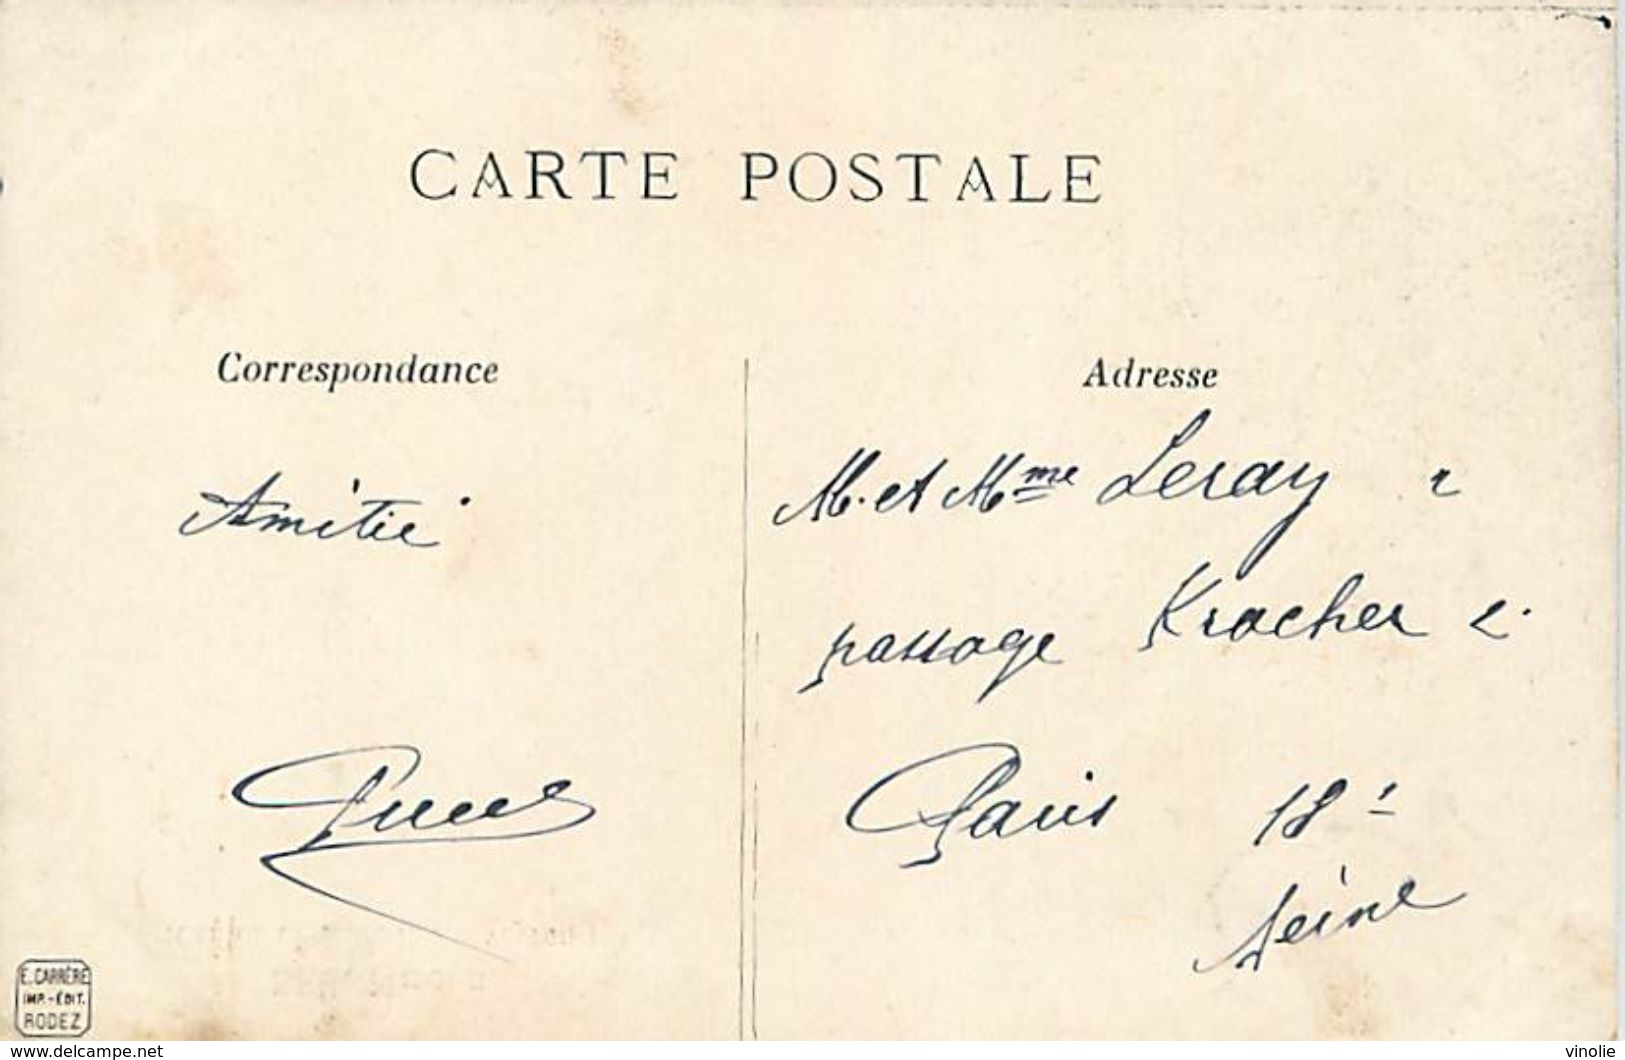 CARTE POSTALE
Correspondance
Amitié
Adresse
M. et Mme Leray
passage Kracher 2.
Paris 18e
Seine
E. CARRÈRE
IMP.-ÉDIT.
RODEZ
www.delcampe.net
vinolie